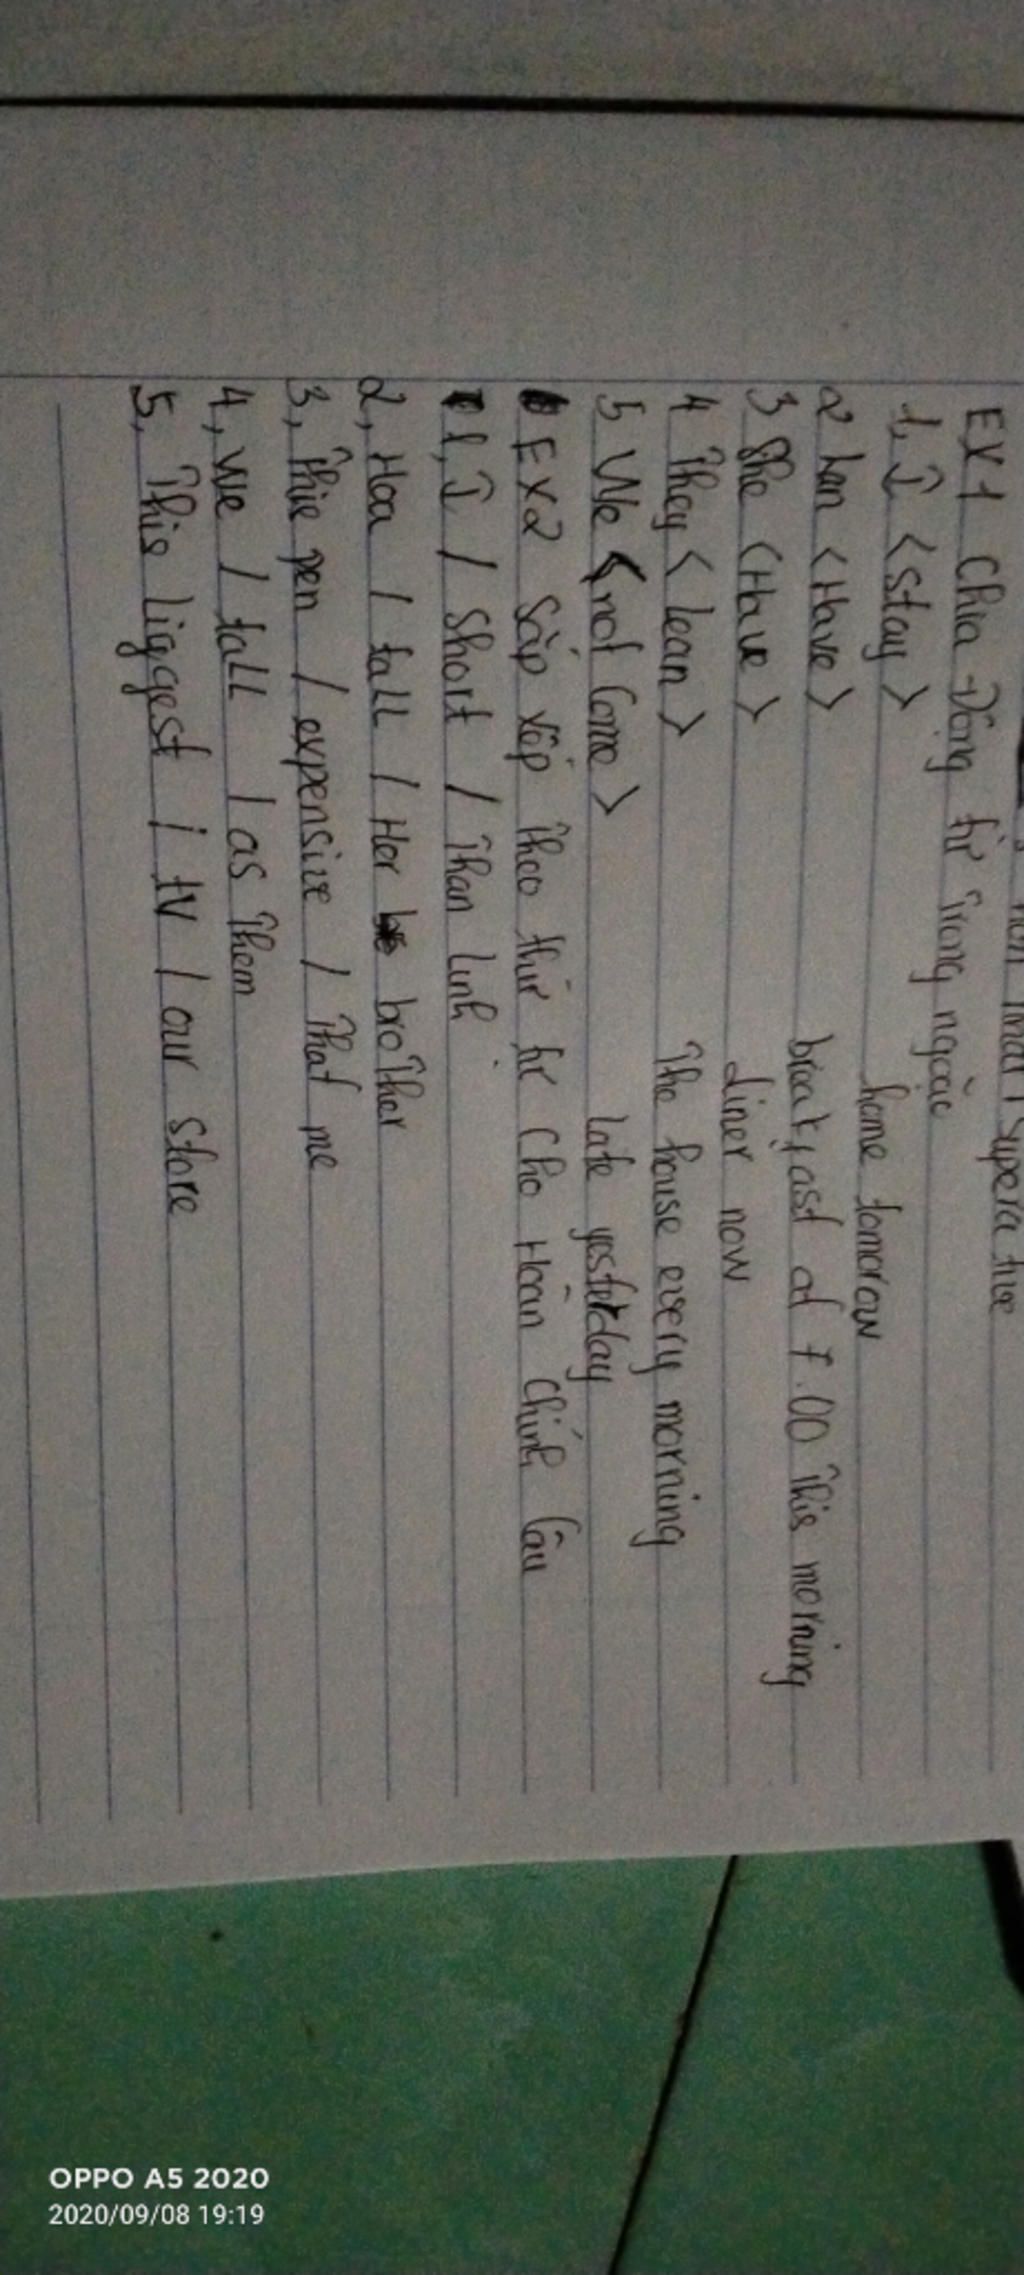 Supera tive
EX1 Chia động từ trong ngoặc
1, I <stay> home tomorow
2 Lan <Have> breakfast at 7.00 This morning
3 She <Have> diner now
4 They <lean> The house every morning
5 We <not Come> late yesterday
EX2 Sắp xếp Theo thứ tự Cho Hoàn chỉnh Câu
1, I / Short / Than Linh
2, Hoa / tall / Her brother
3, This pen / expensive / That me
4, We / tall / as Them
5, This liggest / tv / our store
OPPO A5 2020
2020/09/08 19:19